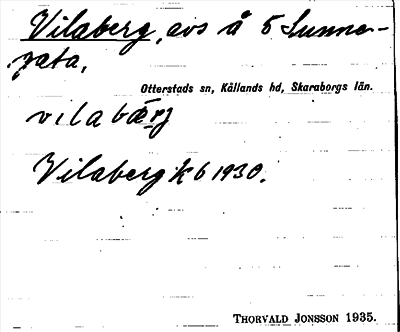 Vilaberg, avs å 5 Sunne-
gata,
Otterstads sn, Kållands hd, Skaraborgs län.
vilabærj
Vilaberg kb 1930.
THORVALD JONSSON 1935.